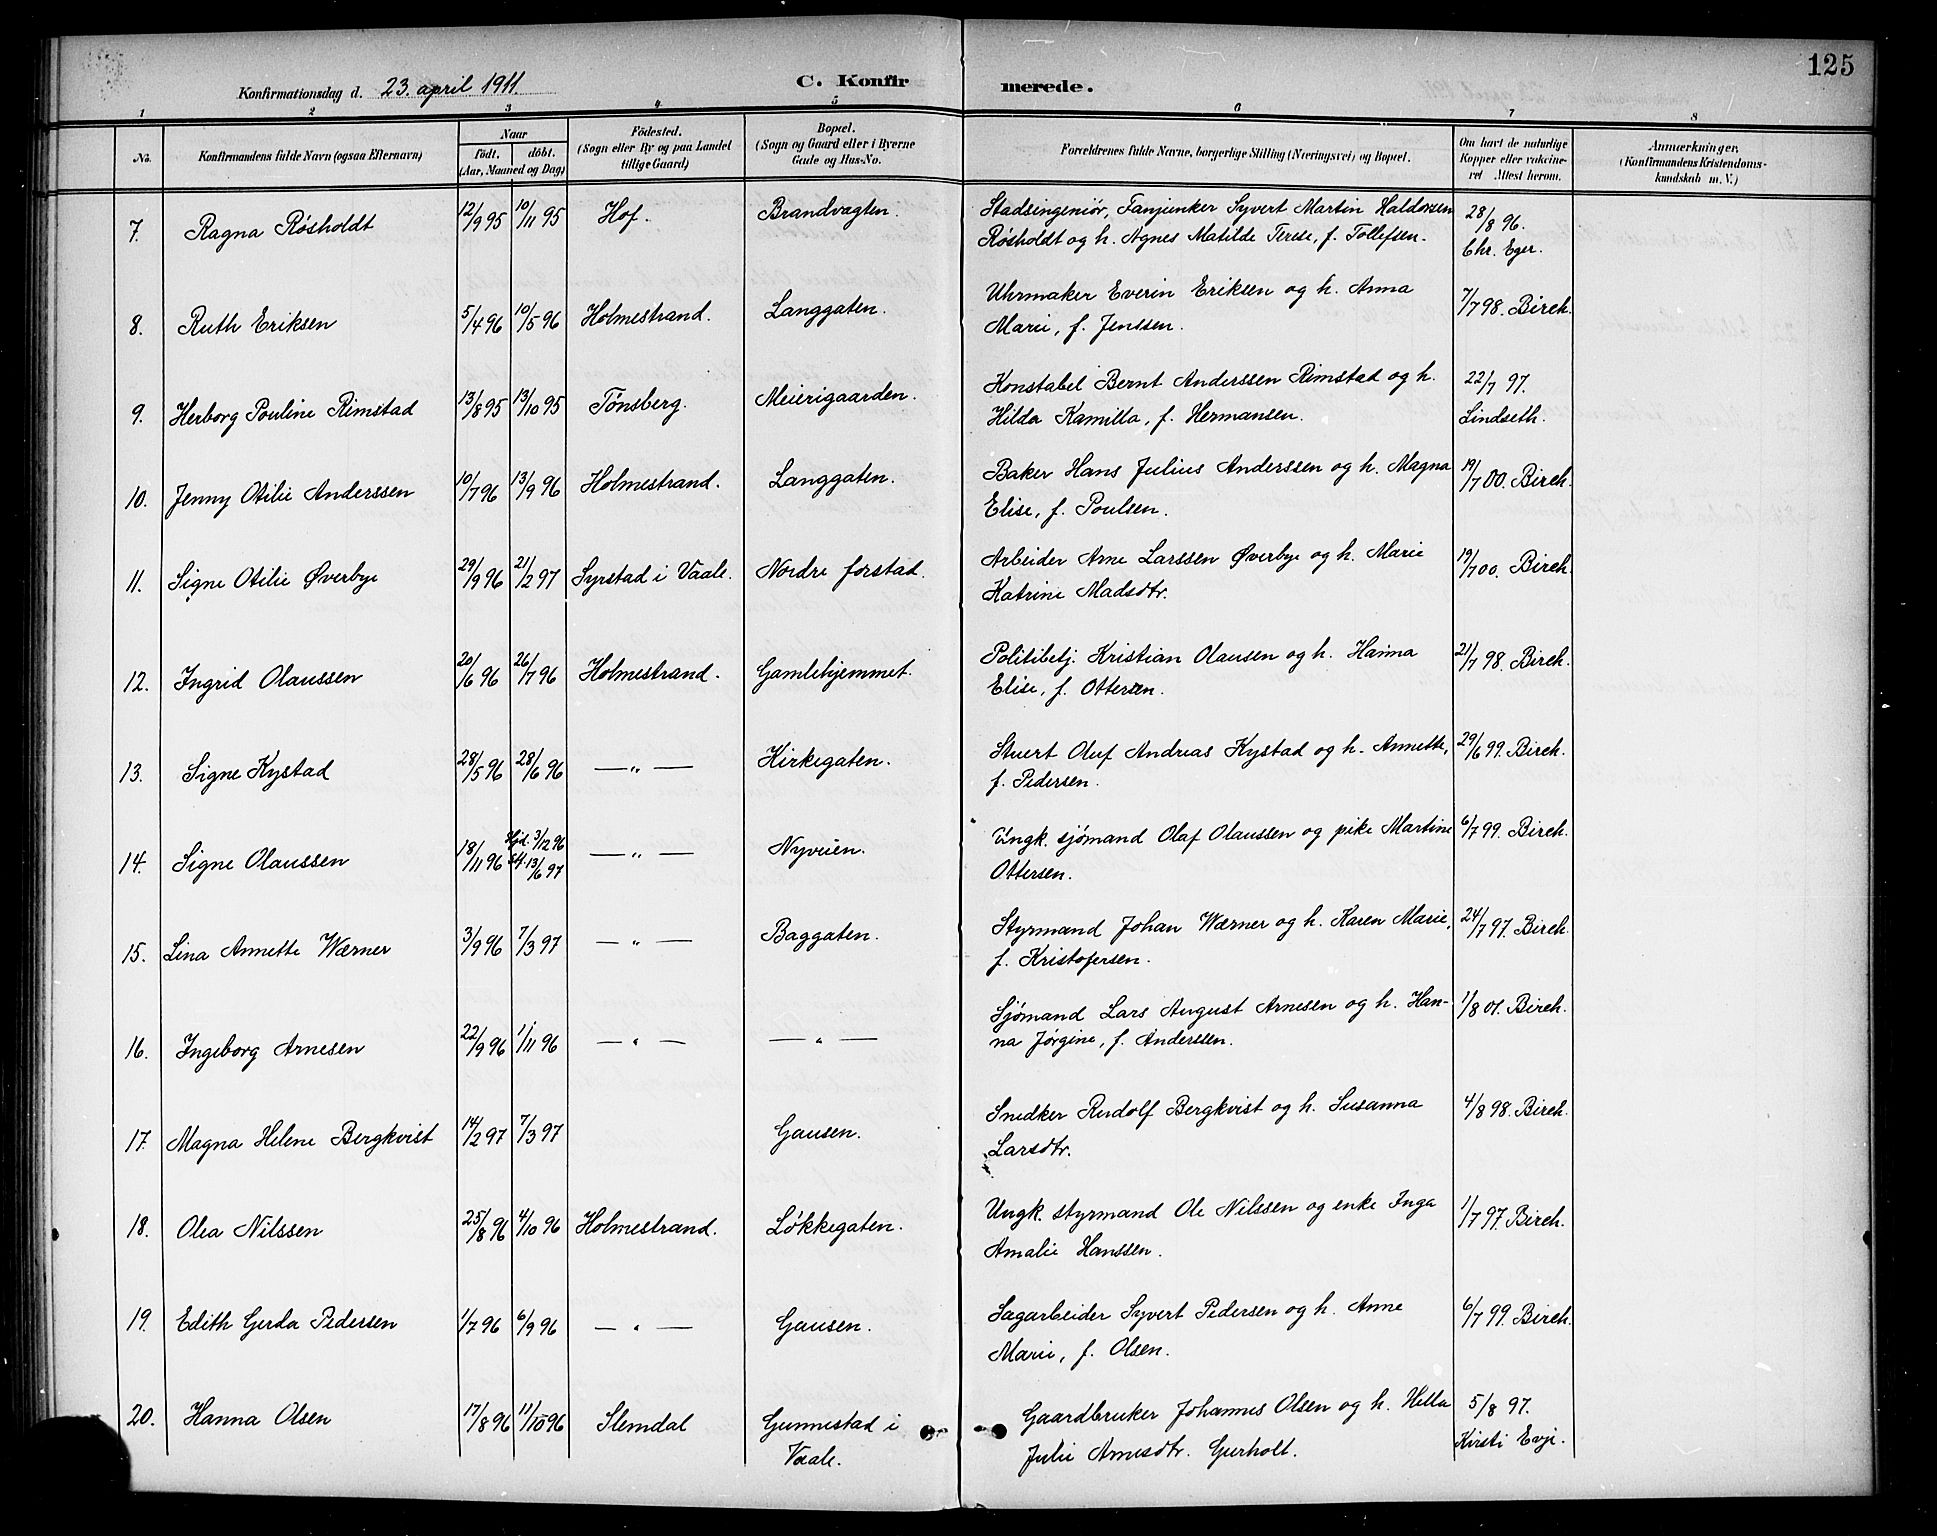 125
Konfirmationsdag d. 23. april 1911.
C. Konfir merede.
1 2 3 4 5 6 7 8
No. Konfirmandens fulde Navn (ogsaa Efternavn) Naar födt. döbt. (Aar, Maaned og Dag) Födested. (Sogn eller By og paa Landet tillige Gaard) Bopæl. (Sogn og Gaard eller i Byerne Gade og Hus-No. Forældrenes fulde Navne, borgerlige Stilling (Næringsvei) og Bopæl. Om havt de naturlige Kopper eller vakcineret Attest herom. Anmærkninger. (Konfirmandens Kristendomskundskab m. V.)
7. Ragna Røsholdt 12/9 95 10/11 95 Hof. Brandvagten. Stadsingeniør, Fanjunker Syvert Martin Haldorsen 28/8 96.
Røsholdt og h. Agnes Matilde Terese, f. Tollefsen. Chr. Eger.
8. Ruth Eriksen 5/4 96 10/5 96 Holmestrand. Langgaten. Uhrmaker Everin Eriksen og h. Anna 7/7 98. Birch.
Marie, f. Jenssen.
9. Herborg Pouline Rimstad 13/8 95 13/10 95 Tønsberg. Meierigaarden. Konstabel Bernt Anderssen Rimstad og h. 22/7 97.
Hilda Kamilla, f. Hermansen. Lindseth.
10. Jenny Otilie Anderssen 10/7 96 13/9 96 Holmestrand. Langgaten. Baker Hans Julius Anderssen og h. Magna 19/7 00. Birch.
Elise, f. Poulsen.
11. Signe Otilie Øverbye 29/9 96 21/2 97 Syrstad i Vaale. Nordre forstad. Arbeider Arne Larssen Øverbye og h. Marie 19/7 00. Birch.
Katrine Madsdtr.
12. Ingrid Olaussen 20/6 96 26/7 96 Holmestrand. Gamlehjemmet. Politibetj. Kristian Olausen og h. Hanna 21/7 98. Birch.
Elise, f. Ottersen.
13. Signe Kystad 28/5 96 28/6 96 — „ — Kirkegaten. Stuert Oluf Andreas Kystad og h. Annette, 29/6 99. Birch.
f. Pedersen.
14. Signe Olaussen 18/11 96 Hjd. 3/12 96 Stf. 13/6 97 — „ — Nyveien. Ungk. sjømand Olaf Olaussen og pike Martine 6/7 99. Birch.
Ottersen.
15. Lina Annette Wærner 3/9 96 7/3 97 — „ — Baggaten. Styrmand Johan Wærner og h. Karen Marie, 24/7 97. Birch.
f. Kristofersen.
16. Ingeborg Arnesen 22/9 96 1/11 96 — „ — — „ — Sjømand Lars August Arnesen og h. Han- 1/8 01. Birch.
na Jørgine, f. Anderssen.
17. Magna Helene Bergkvist 14/2 97 7/3 97 Gausen. Snedker Rudolf Bergkvist og h. Susanna 4/8 98. Birch.
Larsdtr.
18. Olea Nilssen 25/8 96 4/10 96 Holmestrand. Løkkegaten. Ungk. styrmand Ole Nilssen og enke Inga 1/7 97. Birch.
Amalie Hanssen.
19. Edith Gerda Pedersen 1/7 96 6/9 96 — „ — Gausen. Sagarbeider Syvert Pedersen og h. Anne 6/7 99. Birch.
Marie, f. Olsen.
20. Hanna Olsen 17/8 96 11/10 96 Slemdal Gunnestad i Gaardbruker Johannes Olsen og h. Hella 5/8 97.
Vaale. Julie Arnesdtr. Gurholt. Kirsti Evje.